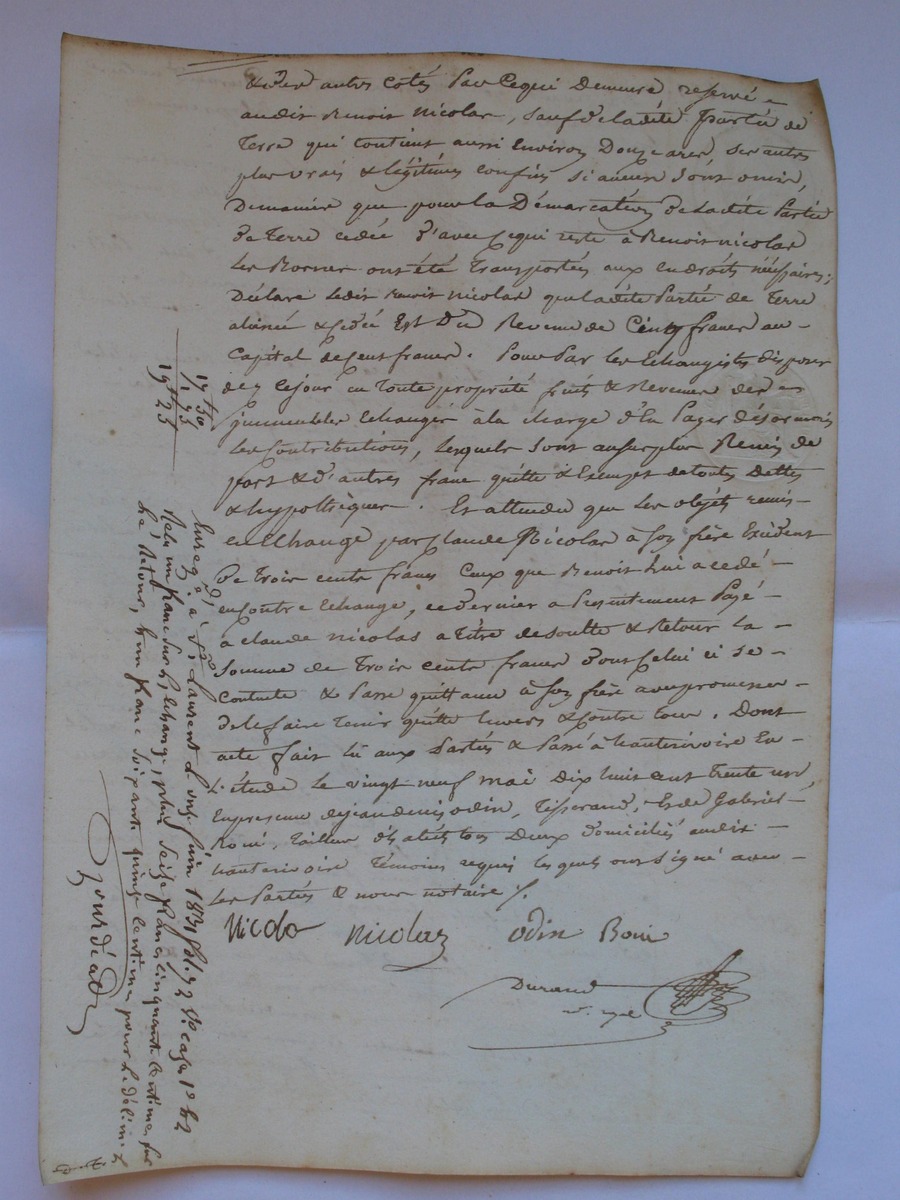 & des autres cotés par cequi demeure reservé
audit Benoit Nicolas, sauf de ladite partie de
Terre qui contient aussi environ Douze ares, ses autres
plus vrais & légitimes confins si aucuns sont omis,
Demanière que pour la Démarcation de ladite Partie
de Terre cedée d'avec cequi reste à Benoit Nicolas
les Bornes ont été transportées aux endroits néssaires;
Déclare ledit Benoit Nicolas que ladite Partie de Terre
aliénée & cédée Est Du Revenu de Cinq francs au
Capital de Cent francs. Pour Par les Echangistes disposer
dez cejour en toute propriété fruits & Revenus des
immeubles echangés à la charge d'en Payer désormais
les Contributions, lesquels sont ausurplus Remis de
part & d'autres franc quitte & Exempt de toutes dettes
& hypothèques. Et attendu que les objets remis
en Echange par Claude Nicolas à son frère Excèdent
De Trois cents francs Ceux que Benoit lui a cedé
en Contre Echange, ce dernier a Présentement Payé
à Claude Nicolas à Titre de soulte & Retour la
Somme de Trois cents francs dont Celui ci se
Contente & Passe quittance à son frère avec promesse
de le faire tenir quitte envers & contre tous. Dont
acte fait lû aux Parties & Passé à hauterivoire En
l'étude le vingt neuf mai Dix huit cent trente un
En presence de jean denis odin, Tisserand, & de Gabriel
, Tailleur d'habits tous Deux domiciliés audit
hauterivoire Témoins requis lesquels ont signé avec
les Parties & nous notaire ./.
Nicolas Nicolas odin
Durand
17f 50
1. 75
19f 25
Enreg. à St. Laurent le onze juin 1831 fol. 72 Vo. case 1e &2
Reçu un franc sur l'echange, plus seize francs cinquante centimes sur
le retour, & un franc soixante quinze centimes pour le décime